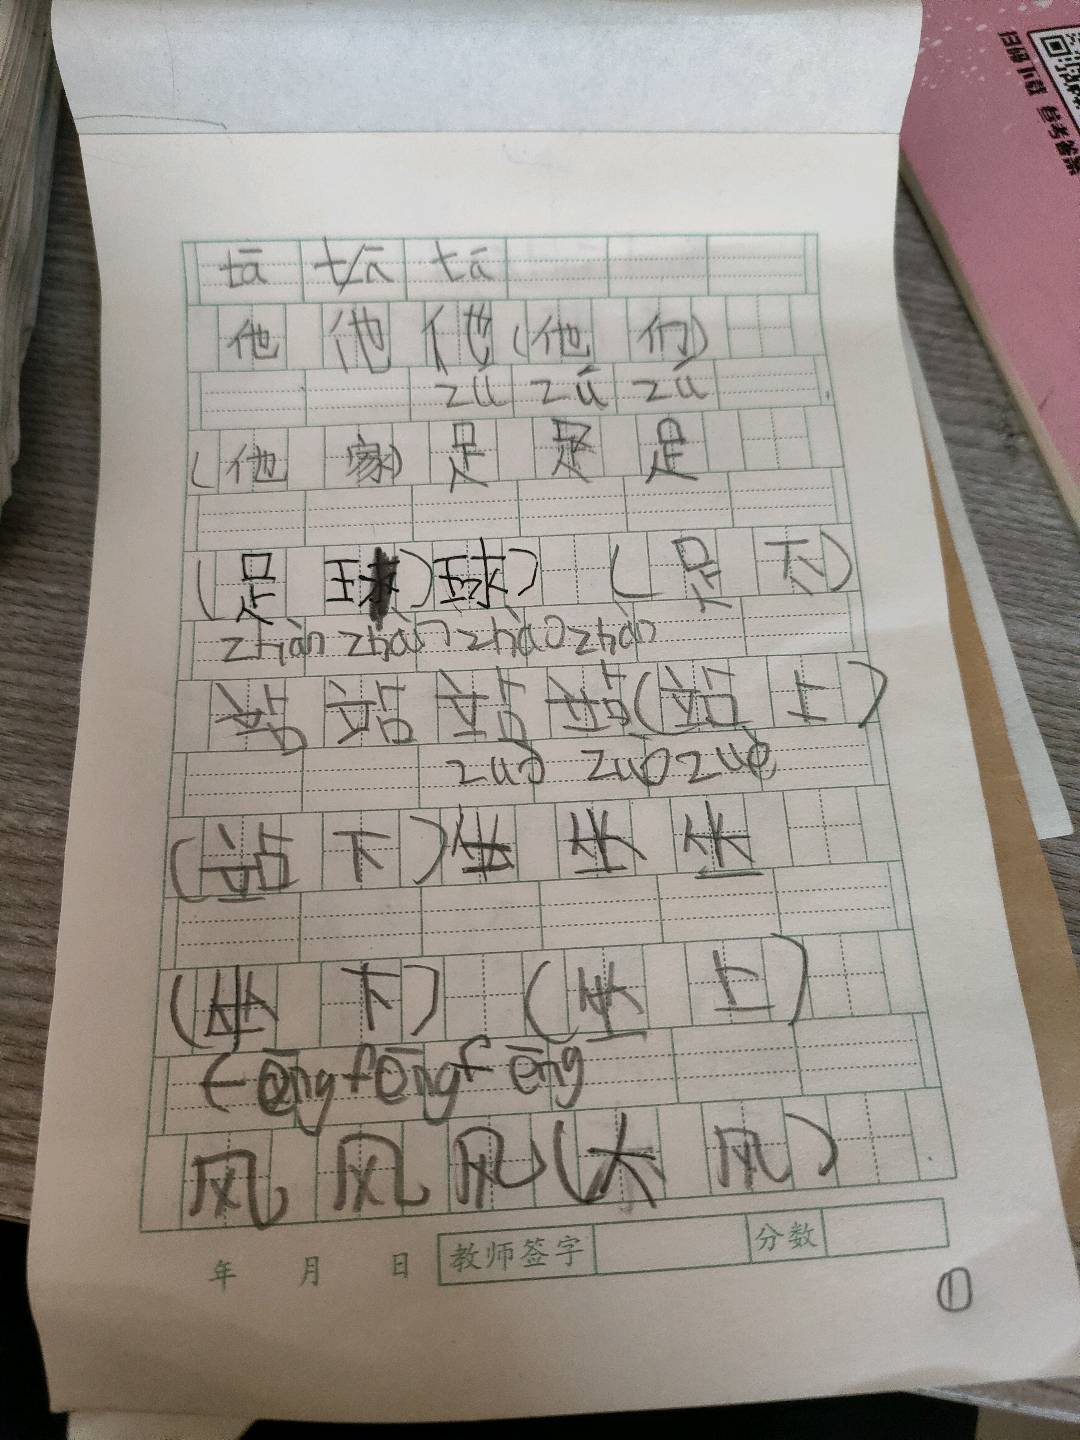 扫码下载 参考答案
tā tā tā
他 他 他 (他 们)
zú zú zú
(他 家) 足 足 足
(足 球) 球) (足 下)
zhàn zhàn zhàn zhàn
站 站 站 站 (站 上)
zuò zuò zuò
(站 下) 坐 坐 坐
(坐 下) (坐 上)
fēng fēng fēng
风 风 风 (大 风)
年 月 日 教师签字 分数
①